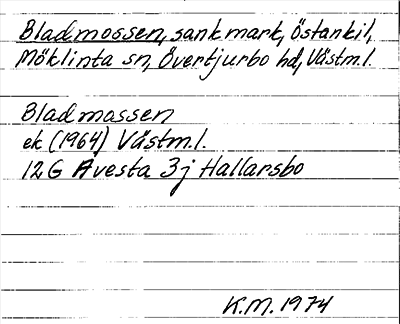 Bladmossen, sank mark, Östankil,
Möklinta sn, Övertjurbo hd, Västm.l.
Bladmossen
ek (1964) Västm.l.
12G Avesta 3j Hallarsbo
K.M. 1974